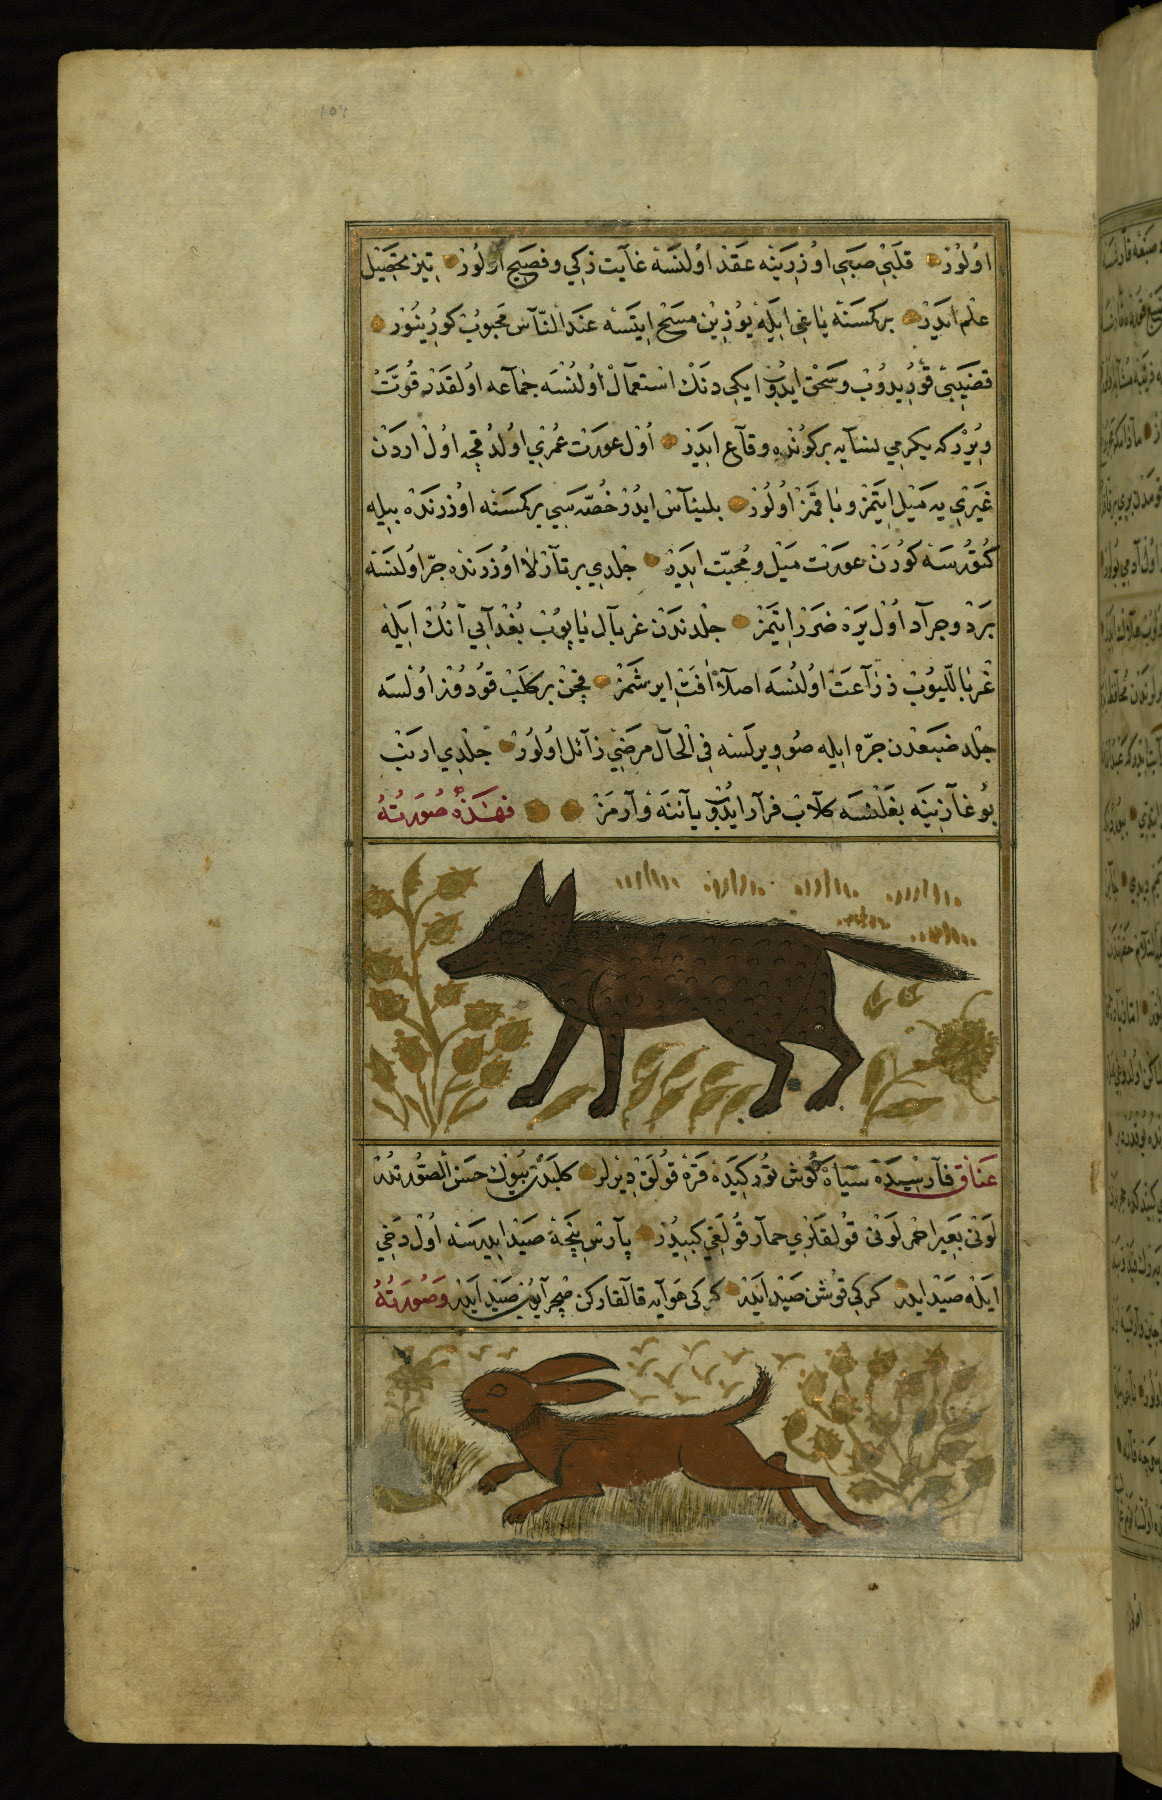 اولور قلبي صبي اوزرينه عقد اولنسه غايت زكي و فصيح اولور تيز تحصيل
علم ايدر بركمسنه ياغي ايله يوزين مسح ايتسه عند الناس محبوب كورينور
قضيبي قوريدوب و سحق ايدوب ايكي دنك استعمال اولنسه جماعه اولقدر قوت
ويرركه يكرمي نسايه بركونده وقاع ايدر اول عورت عمري اولدقجه اول اردن
غيري يه ميل ايتمز و باقمز اولور بليناس ايدر خصيه سي بركمسنه اوزرنده بيله
كتورسه كورن عورت ميل و محبت ايدر جلدي برتارلا اوزرنده جر اولنسه
برد و جراد اول يره ضرر ايتمز جلدندن غربال ياپوب بغدايي آنك ايله
غربالليوب زراعت اولنسه اصلا آفت ايرشمز قچن بر كلب قودوز اولسه
جلد ضبعدن جره ايله صو ويرلسه في الحال مرضي زائل اولور جلدي ارنب
بوغازينه بغلنسه كلاب فرار ايدوب ياننه وارمز فهذه صورته
عناق فارسيده سياه كوش توركيده قره قولق ديرلر كلبدن بيوك حسن الصورتدر
لوني بعير احمر لوني قولقلري حمار قولغي كبيدر پارس نيجه صيد ايدرسه اول دخي
ايله صيد ايدر كركي قوشن صيد ايدر كركي هوايه قالقاركن صچرايوب صيد ايدر و صورته